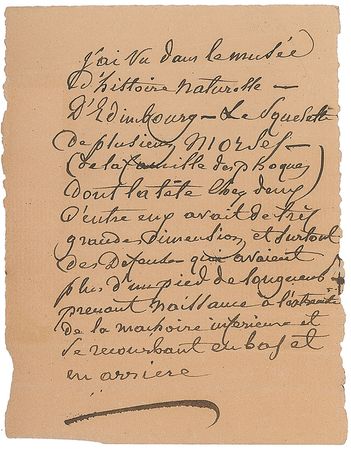 j'ai vu dans le musée
d'histoire naturelle —
D'Edimbourg — Le Squelette
de plusieurs Morses —
(de la famille des phoques)
dont la tête chez deux
d'entre eux avait de très
grandes dimension, et surtout
des Défenses qui avaient
plus d'un pied de longueur —
prenant naissance à l'extremité
de la machoire inferieure et
se recourbant en bas et
en arriere